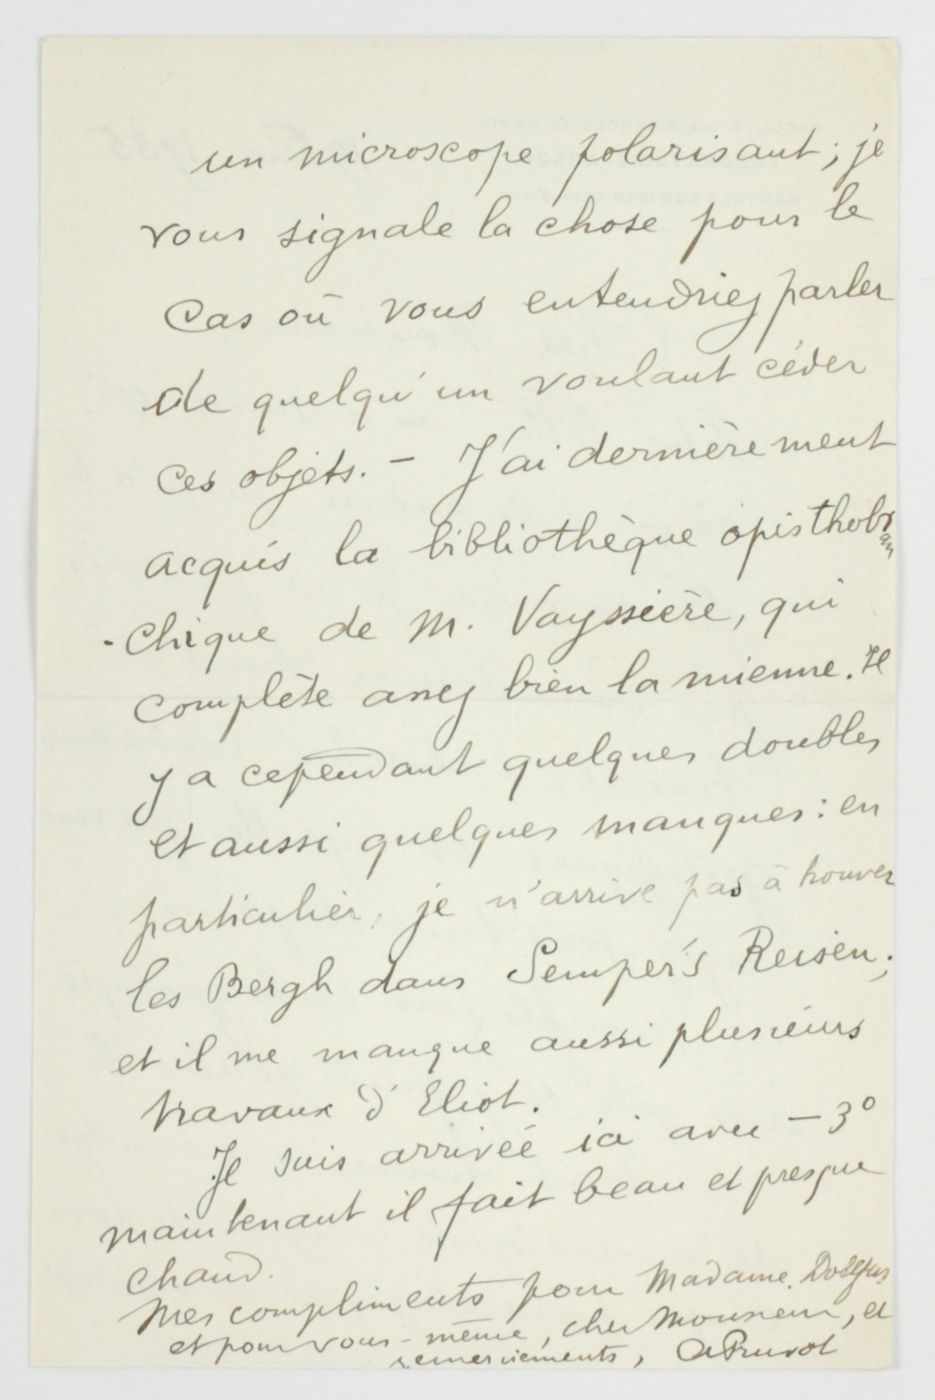 un microscope polarisant; je
vous signale la chose pour le
cas où vous entendriez parler
de quelqu'un voulant céder
ces objets. — J'ai dernièrement
acquis la bibliothèque opisthobran
-chique de M. Vayssière, qui
complète assez bien la mienne. Il
y a cependant quelques doubles
et aussi quelques manques: en
particulier, je n'arrive pas à trouver
les Bergh dans Semper's Reisen;
et il me manque aussi plusieurs
travaux d'Eliot.
Je suis arrivée ici avec — 3°
maintenant il fait beau et presque
chaud.
Mes compliments pour Madame Dollfus
et pour vous-même, cher Monsieur, et
remerciements, APruvot